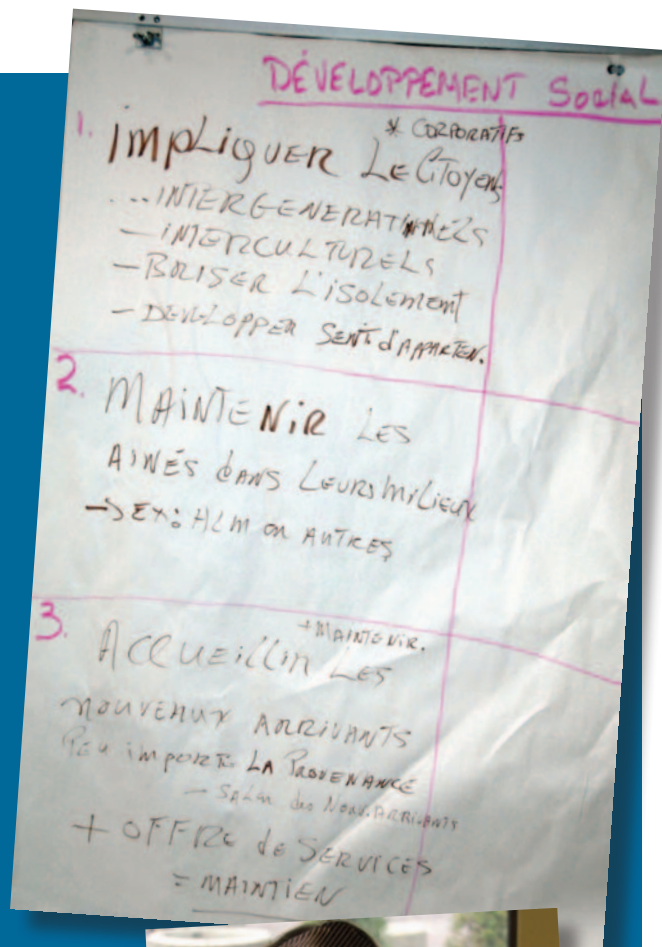 DÉVELOPPEMENT SociaL
* CORPORATIFS
1. iMPLiQUER LE CiToyens
... INTERGENERATIONNELS
– iNTERCULTURELS
– BRISER L'iSOLEMENT
– DEVELOPPER SENT d'APPARTEN.
2. MAiNTENiR LES
AiNÉS dANS LEURS MiLiEUX
-> EX: HLM ou AUTRES
+ MAiNTENiR.
3. ACCUEiLLiR LES
NOUVEAUX ARRIVANTS
PEU iMPORTE LA PROVENANCE
– SALON des NOUV. ARRIVANTS
+ OFFRE de SERVICES
= MAINTIEN